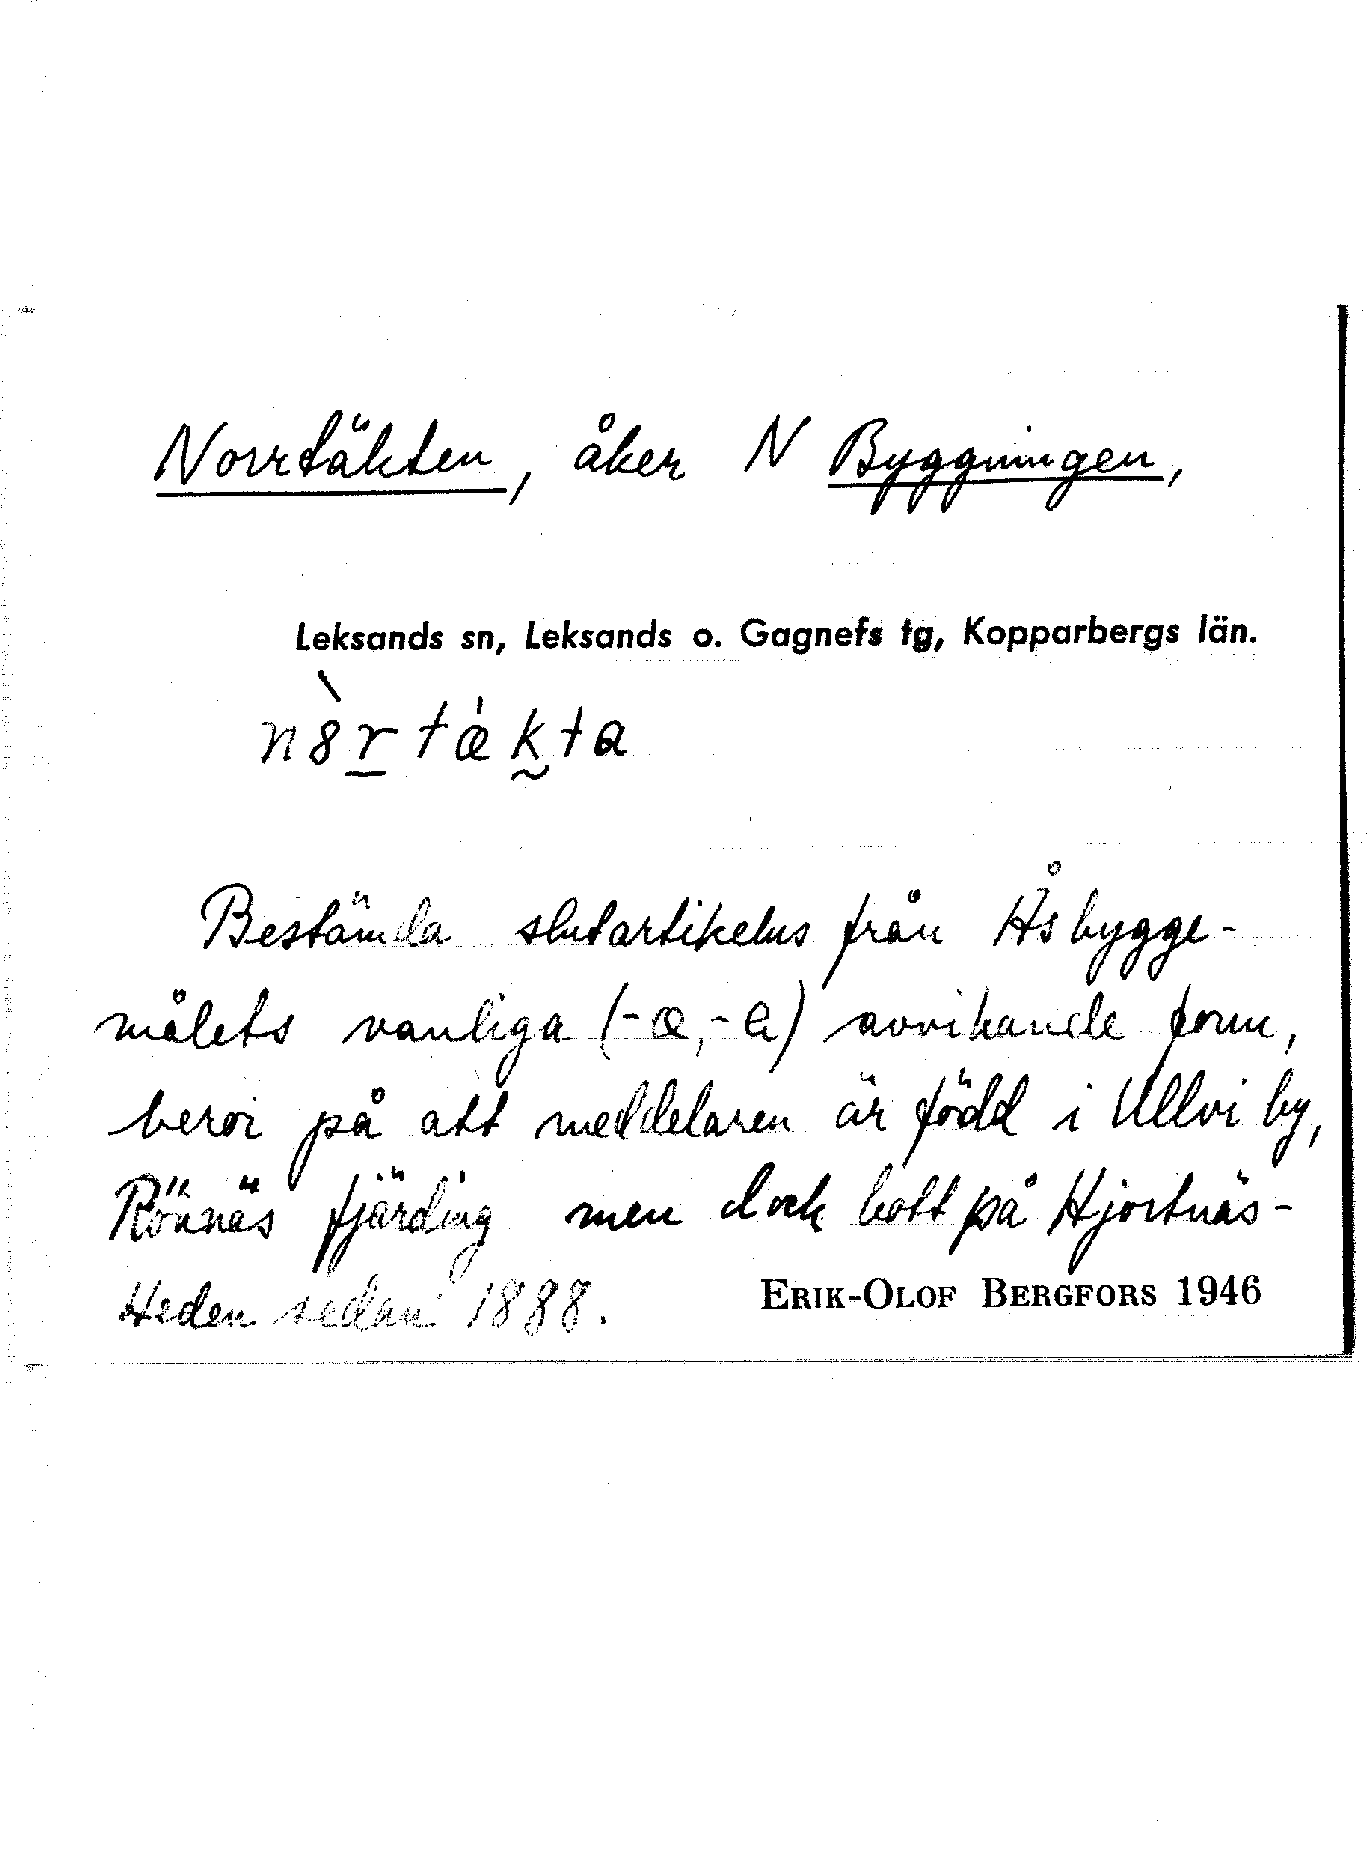 Norrtäkten, åker N Byggningen,
Leksands sn, Leksands o. Gagnefs tg, Kopparbergs län.
Bestämda slutartikelns från Åsbygge-
målets vanliga (-æ, -a) avvikande form,
beror på att meddelaren är född i Ullvi by,
Rönnäs fjärding men dock bott på Hjortnäs-
Heden sedan 1888.
ERIK-OLOF BERGFORS 1946